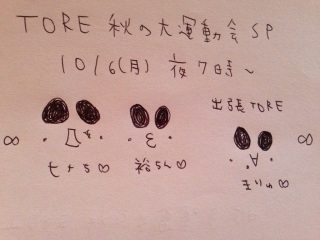 TORE 秋の大運動会 SP
10/6(月) 夜7時～
出張TORE
∞ ∞
ななち♡ 裕ちん♡ まりゅ♡